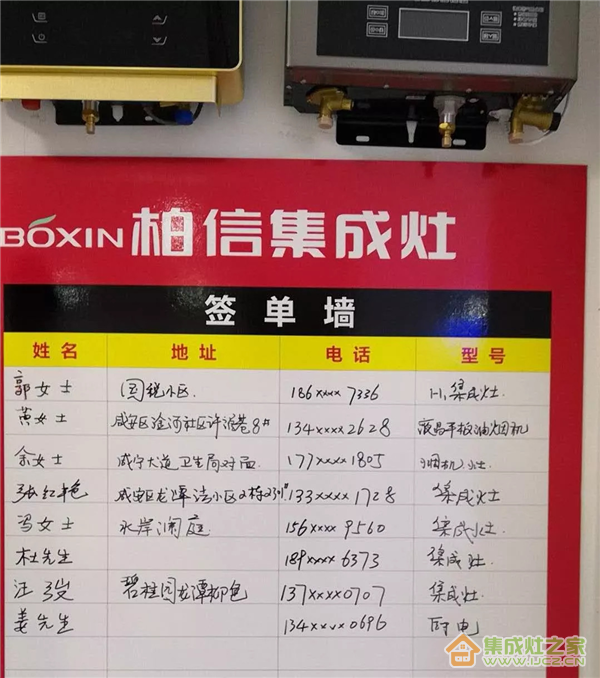 BOXIN 柏信集成灶
签单墙
姓名 地址 电话 型号
郭女士 国税小区 186xxxx7336 H1集成灶
黄女士 咸安区淦河社区许泗巷8# 134xxxx2628 液晶平板油烟机
余女士 咸宁大道卫生局对面 177xxxx1805 烟机灶
张红艳 咸安区龙潭 小区2栋 133xxxx1728 集成灶
冯女士 水岸澜庭 156xxxx9560 集成灶
杜先生 189xxxx6373 集成灶
汪 碧桂园龙潭 137xxxx0707 集成灶
姜先生 134xxxx0696 厨电
集成灶之家
www.jczcn.cn